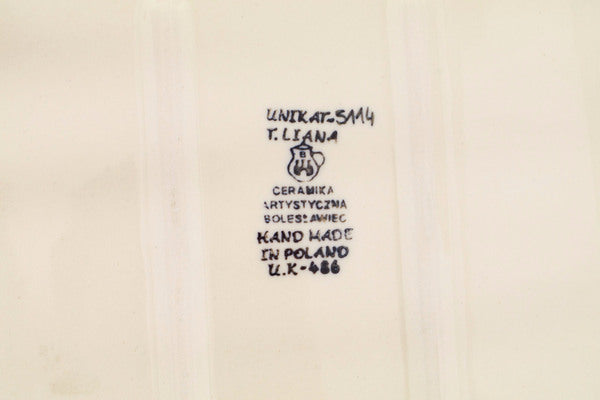 UNIKAT-S114
T. LIANA
B
CERAMIKA
ARTYSTYCZNA
BOLESŁAWIEC
HAND MADE
IN POLAND
U.K-486